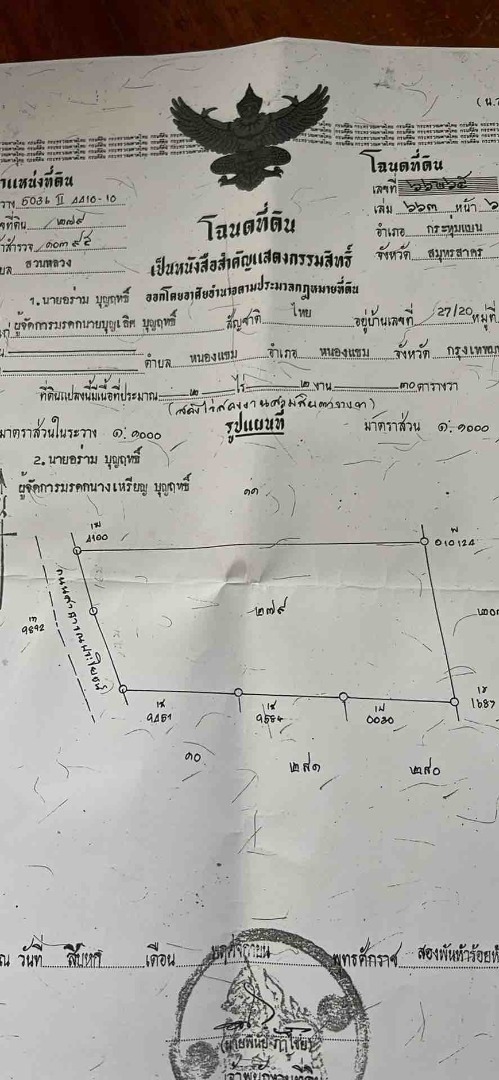 โฉนดที่ดิน
ตำแหน่งที่ดิน
5036 II 4410-10
๒๗๙
สวนหลวง
โฉนดที่ดิน
เลขที่
เล่ม ๖๖๓ หน้า
อำเภอ กระทุ่มแบน
จังหวัด สมุทรสาคร
เป็นหนังสือสำคัญแสดงกรรมสิทธิ์
ออกโดยอาศัยอำนาจตามประมวลกฎหมายที่ดิน
1. นายอร่าม บุญฤทธิ์
ผู้จัดการมรดกนายบุญเชิด บุญฤทธิ์ สัญชาติ ไทย อยู่บ้านเลขที่ 27/20 หมู่ที่
ตำบล หนองแขม อำเภอ หนองแขม จังหวัด กรุงเทพ
ที่ดินแปลงนี้มีเนื้อที่ประมาณ ๒ ไร่ ๒ งาน ๓๐ ตารางวา
(สองไร่สองงานสามสิบตารางวา)
มาตราส่วนในระวาง ๑:๑๐๐๐ รูปแผนที่ มาตราส่วน ๑:๑๐๐๐
2. นายอร่าม บุญฤทธิ์
ผู้จัดการมรดกนางเหรียญ บุญฤทธิ์
๑๑
4100
010124
๒๗๙
ถนนสาธารณประโยชน์
9842
1687
9461
0030
๑๐
๒๘๑
๒๘๐
วันที่ สิบหก เดือน พฤศจิกายน พุทธศักราช สองพันห้าร้อย